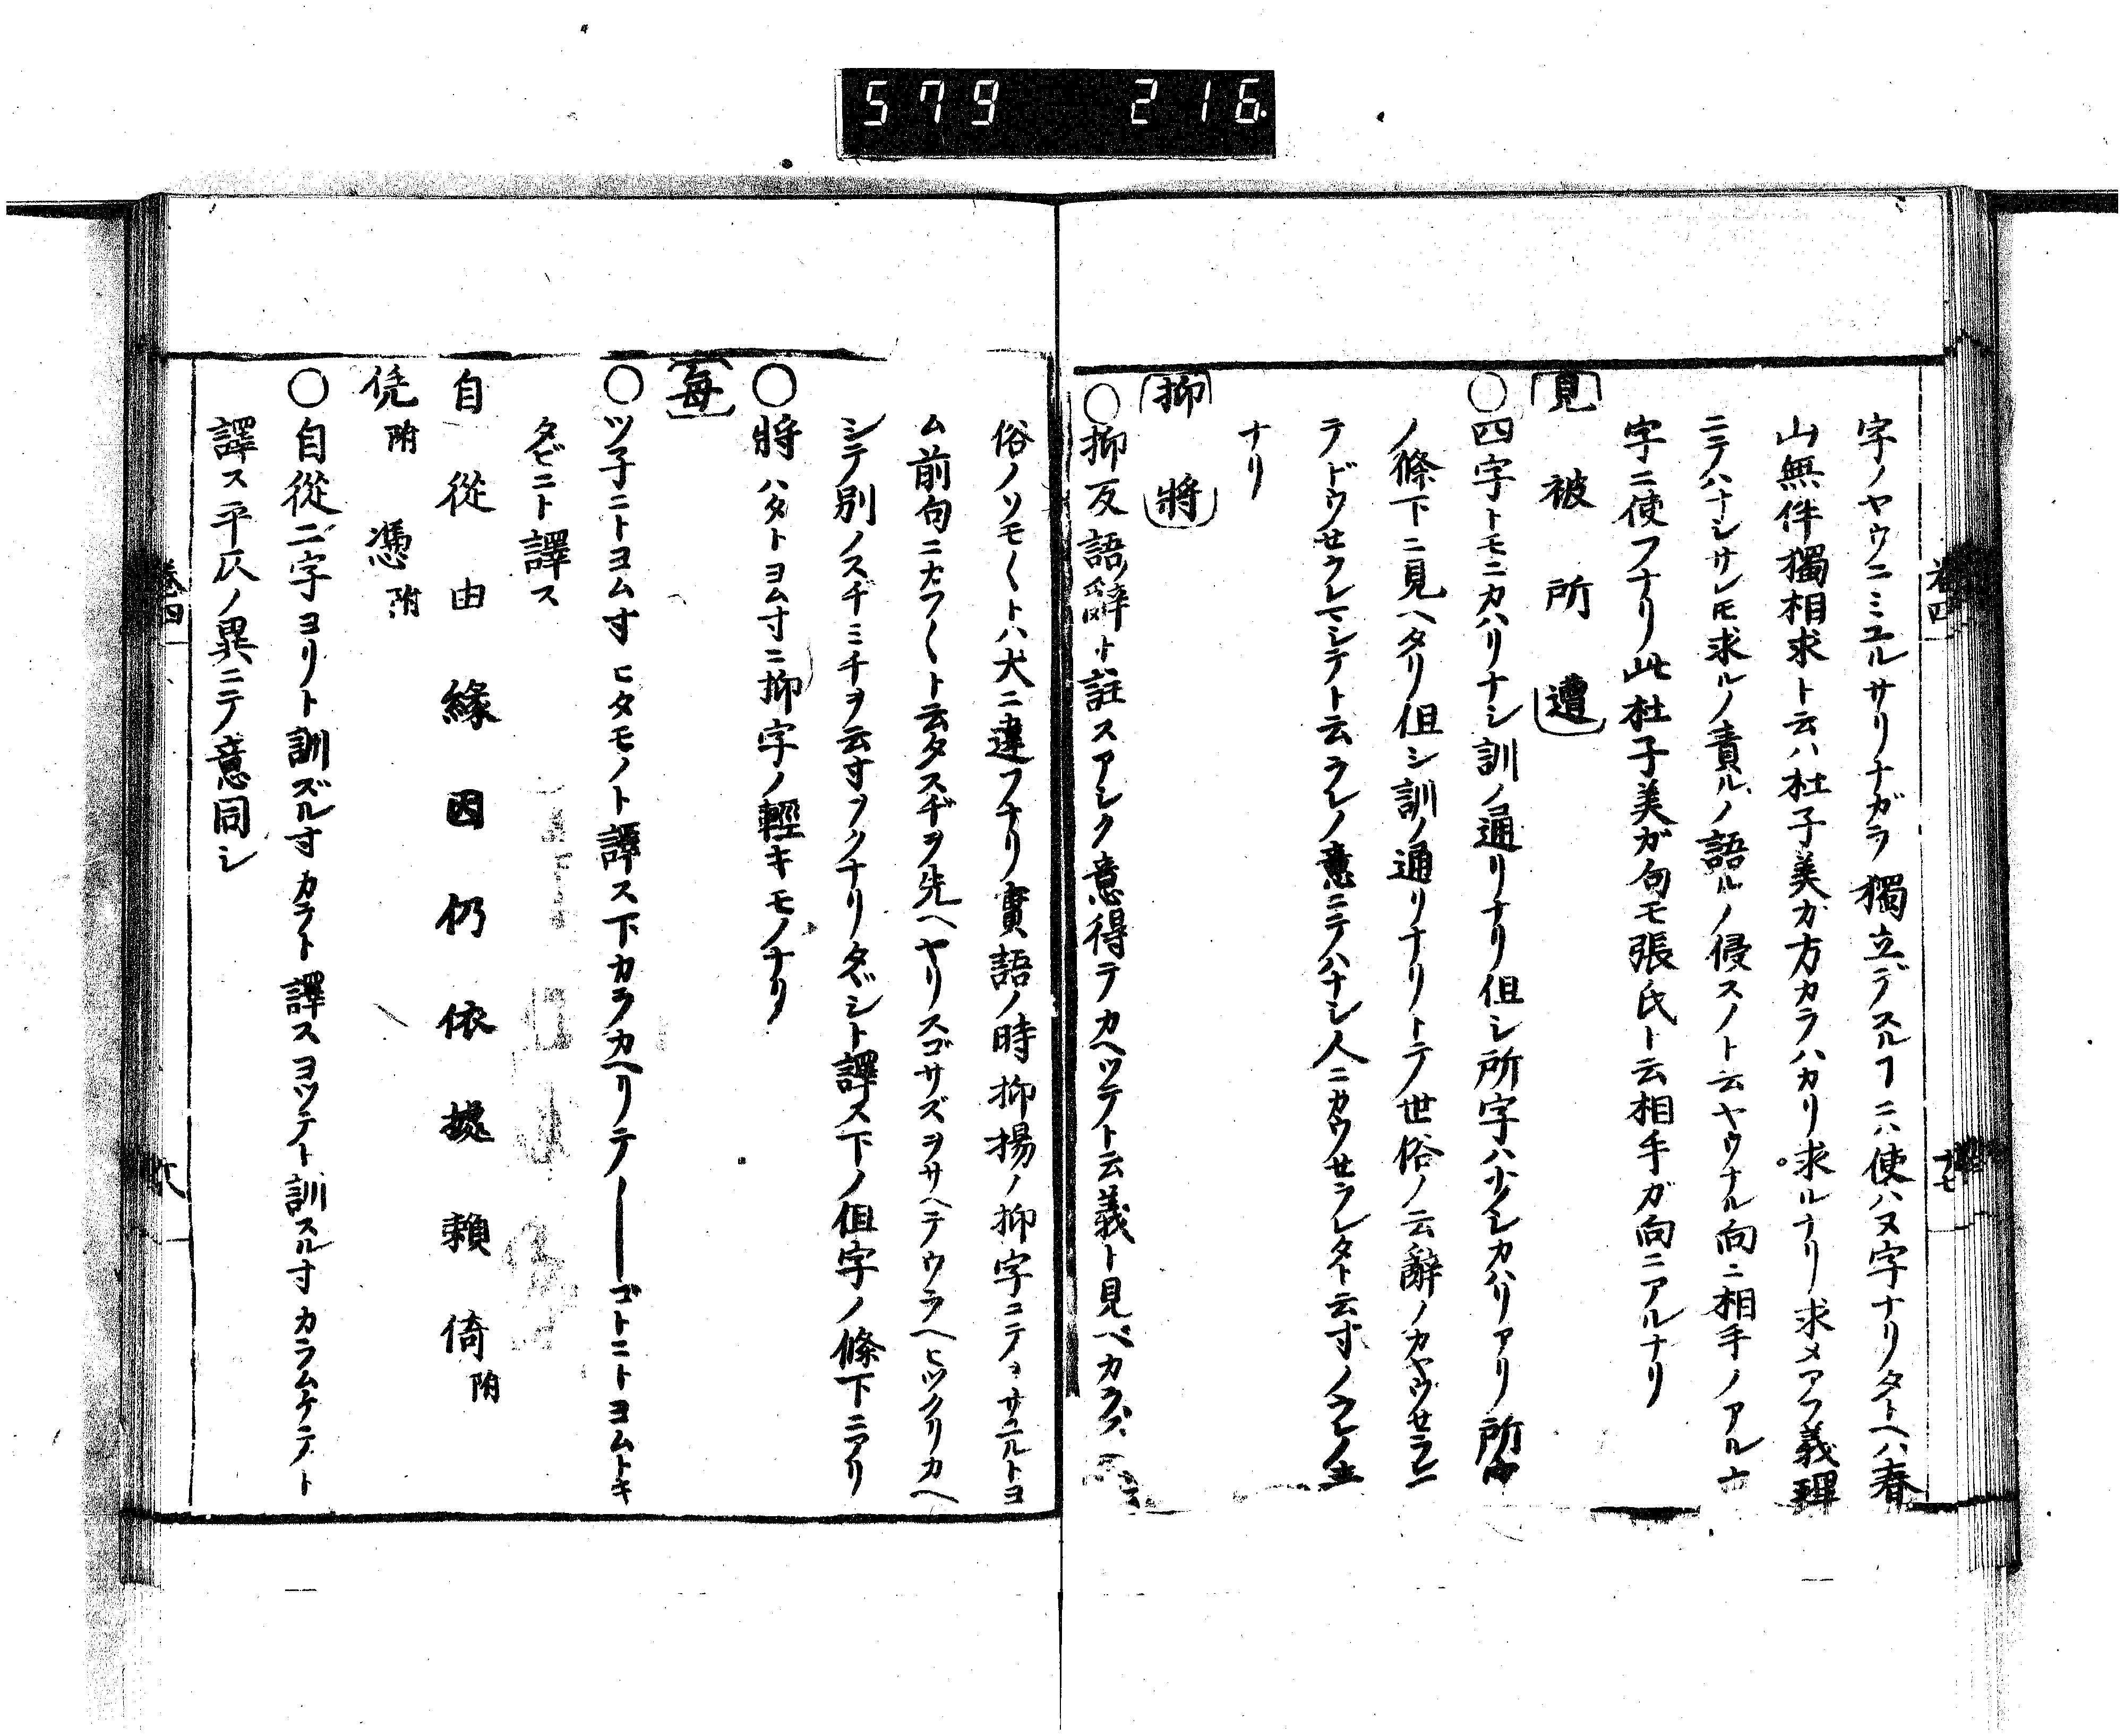 579 216.
巻四
字ノヤウニミユルサリナガラ獨立デスルヿニハ使ハヌ字ナリタトヘハ春
山無伴獨相求ト云ハ杜子美ガ方カラハカリ求ルナリ求メアフ義理
ニテハナシサレ𪜈求ルノ責ルノ語ルノ侵スノト云ヤウナル向ニ相手ノアル
字ニ使フナリ此杜子美ガ句モ張氏ト云相手ガ向ニアルナリ
見被所遭
○四字トモニカハリナシ訓ノ通リナリ但シ所字ハ少シカハリアリ所字
ノ條下ニ見ヘタリ但シ訓ノ通リナリトテ世俗ノ云辭ノカヤウセラレ
テドウセラレマシテト云ラレノ意ニテハナシ人ニカウセラレタト云寸ノラレノ
ナリ
抑將
○抑反語辭ト註スアシク意得テカヘツテト云義ト見ベカラズ
俗ノソモ〱トハ大ニ違フナリ實語ノ時抑揚ノ抑字ニテヲサユルトヨ
ム前句ニカフ〱ト云タスヂヲ先ヘヤリスゴサズヲサヘテウラヘヒツクリカヘ
シテ別ノスヂミチヲ云寸ヲクナリタヾシト譯ス下ノ但字ノ條下ニアリ
○將ハタトヨム寸ニ抑字ノ輕キモノナリ
每
○ツ子ニトヨム寸ヒタモノト譯ス下カラカヘリテ――ゴトニトヨムトキ
タビニト譯ス
自從由緣因仍依據賴倚附
凭附憑附
○自從二字ヨリト訓ズル寸カラト譯スヨツテト訓スル寸カラムケテト
譯ス平仄ノ異ニテ意同シ
巻四